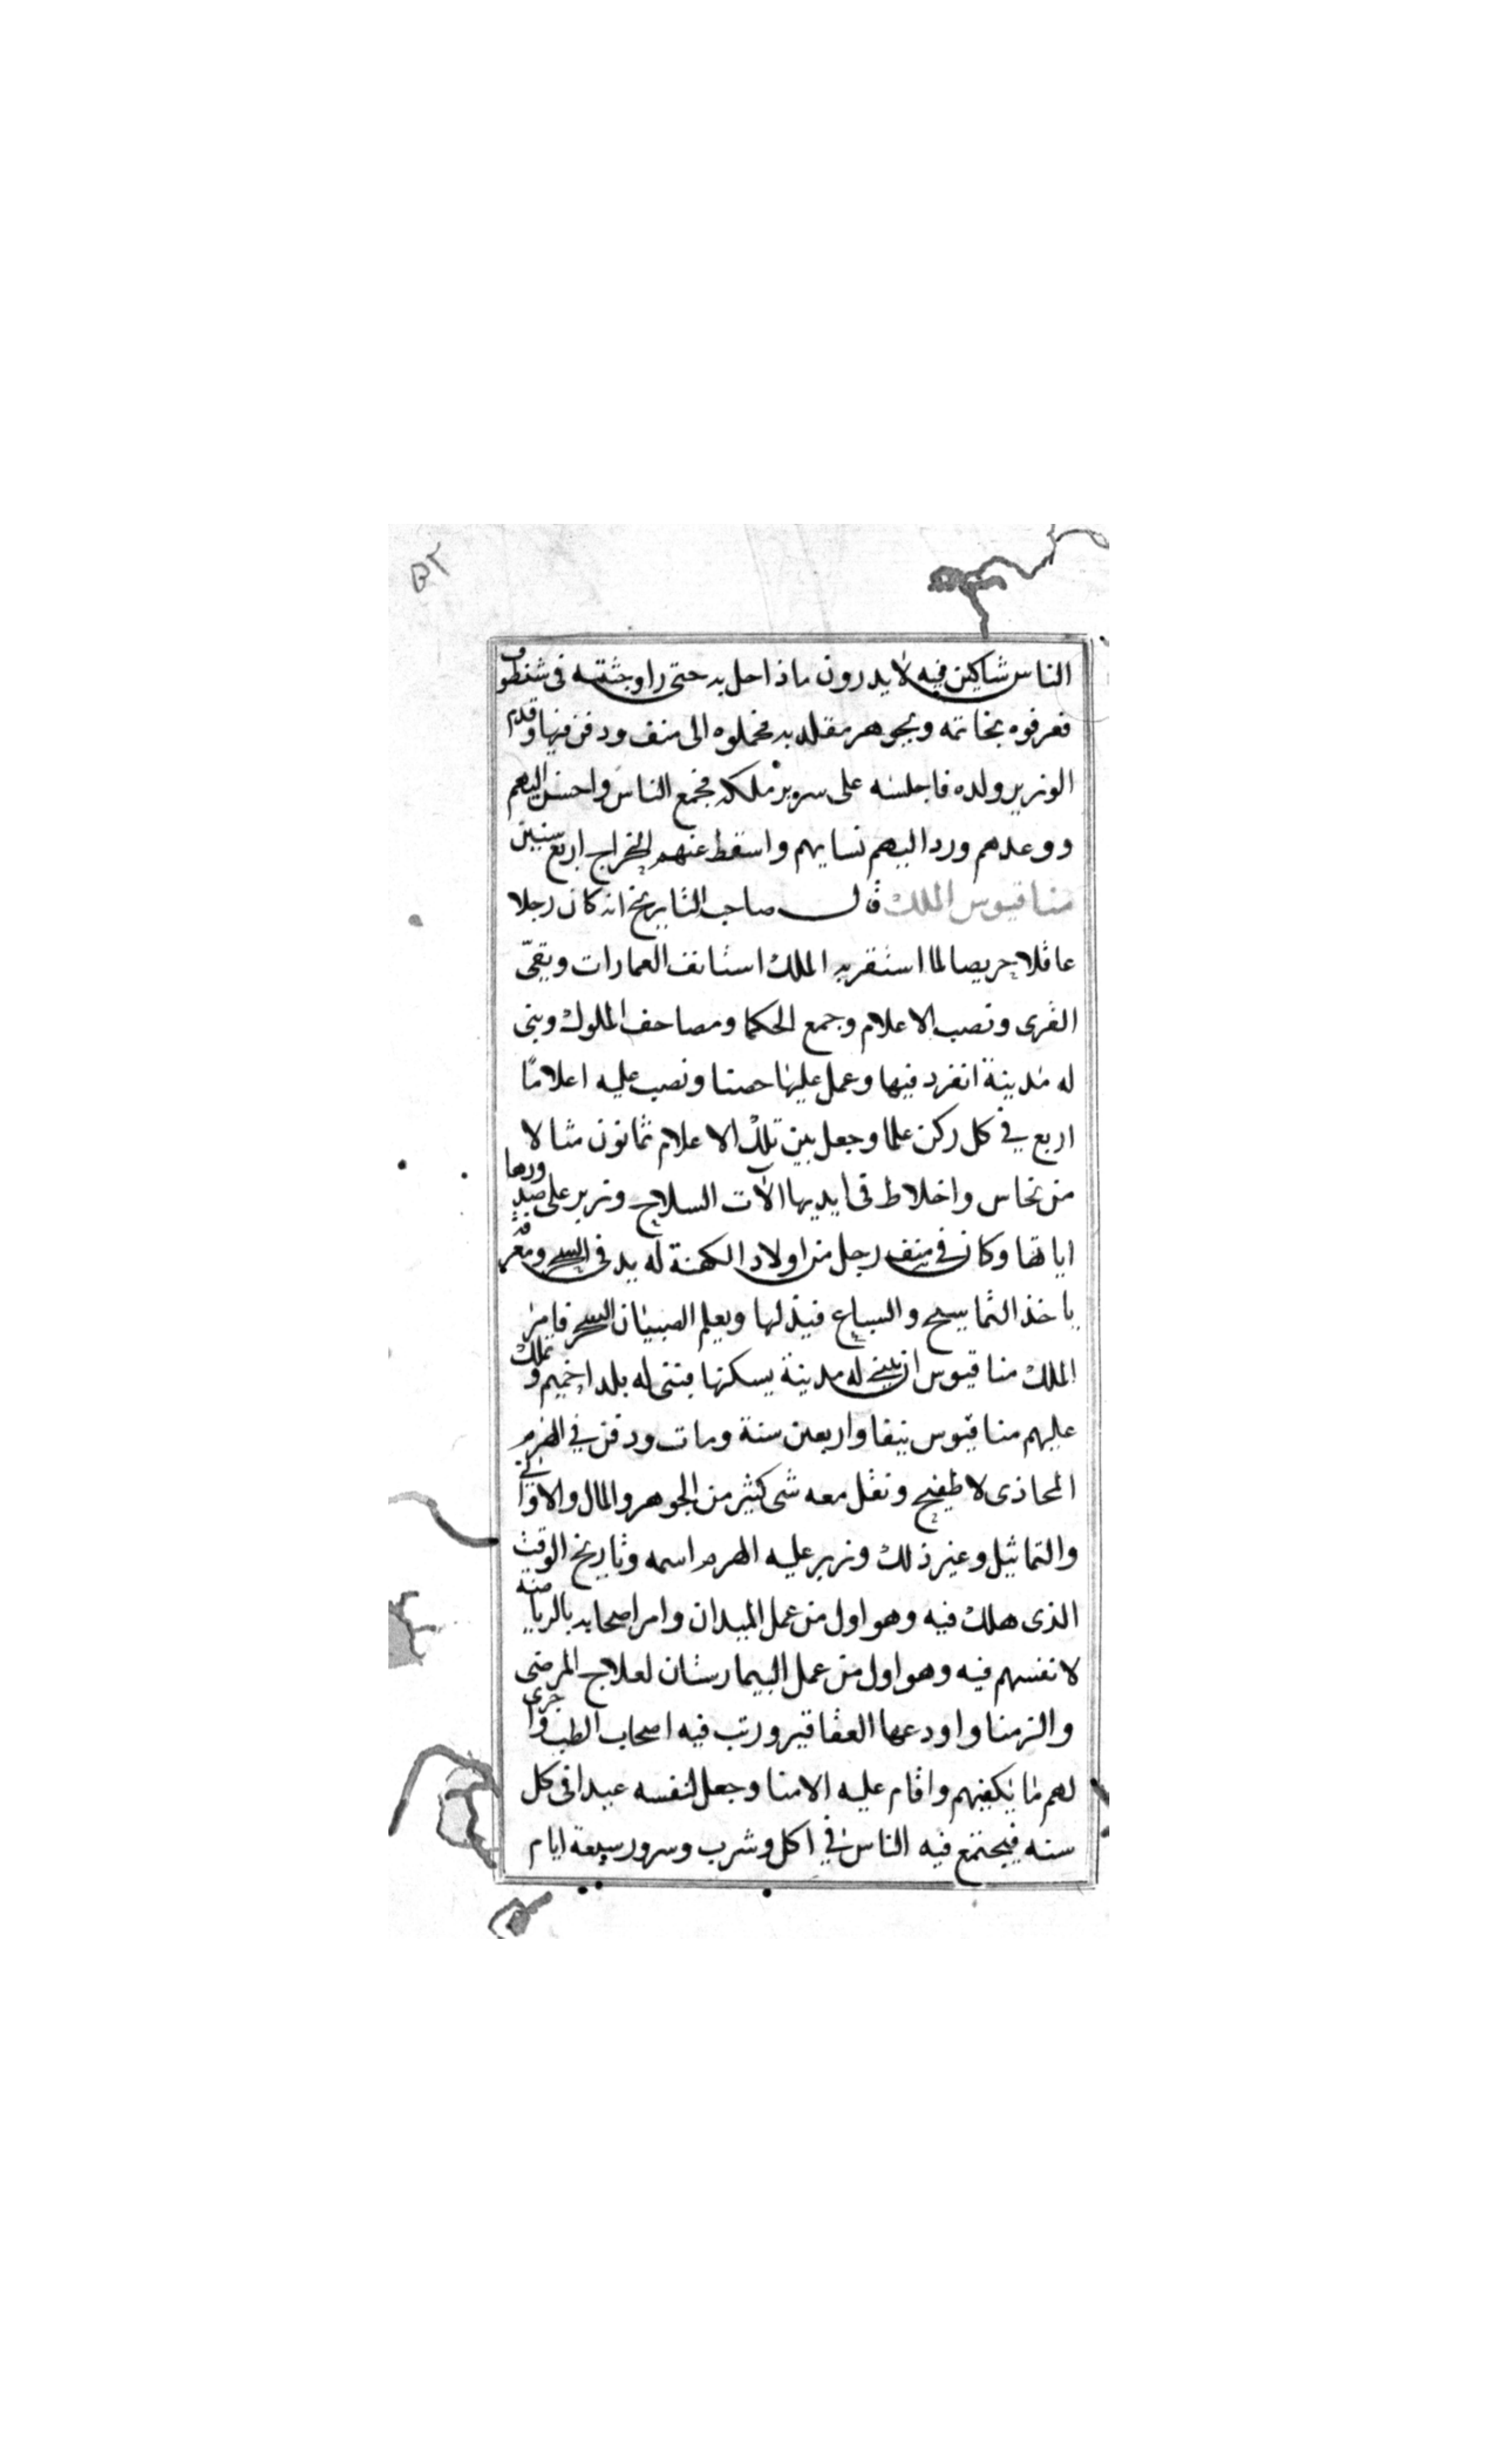 ٥٢
الناس شاكين فيه لا يدرون ماذا حل به حتى راو جثته فى شنطوف
فعرفوه بخاتمه وبجوهر مقلد به فحملوه الى منف ودفن فيها وقدم
الوزير ولده فاجلسه على سرير ملكه فجمع الناس واحسن اليهم
ووعدهم ورد اليهم نسايهم واسقط عنهم الخراج اربع سنين
مناقيوس الملك قال صاحب التاريخ انه كان رجلا
عاقلا حريصا لما استقر به الملك استانف العمارات وبقى
القرى ونصب الاعلام وجمع الحكما ومصاحف الملوك وبنى
له مدينة انفرد فيها وعمل عليها حصنا ونصب عليه اعلامًا
اربع في كل ركن علما وجعل بين تلك الاعلام ثمانون مثالا
من نحاس واخلاط فى ايديها الآت السلاح وزبر على صدورها
اياتها وكان في منف رجل من اولاد الكهنة له يد فى السحر ومعرفة
ياخذ التماسيح والسباع فيذلها ويعلم الصبيان السحر فامر
الملك مناقيوس ان يبنى له مدينة يسكنها فبنى له بلد اخميم وتملك
عليهم مناقيوس نيفا واربعين سنة ومات ودفن في الهرم
المحاذى لاطفيح ونقل معه شى كثير من الجوهر والمال والاوانى
والتماثيل وغير ذلك وزبر عليه الهرم اسمه وتاريخ الوقت
الذى هلك فيه وهو اول من عمل الميدان وامر اصحابه بالرياضة
لانفسهم فيه وهو اول من عمل البيمارستان لعلاج المرضى
والزمنا واودعها العقاقير ورتب فيه اصحاب الطب واجرى
لهم ما يكفيهم واقام عليه الامنا وجعل لنفسه عيدا فى كل
سنه فيجتمع فيه الناس في اكل وشرب وسرور سبعة ايام